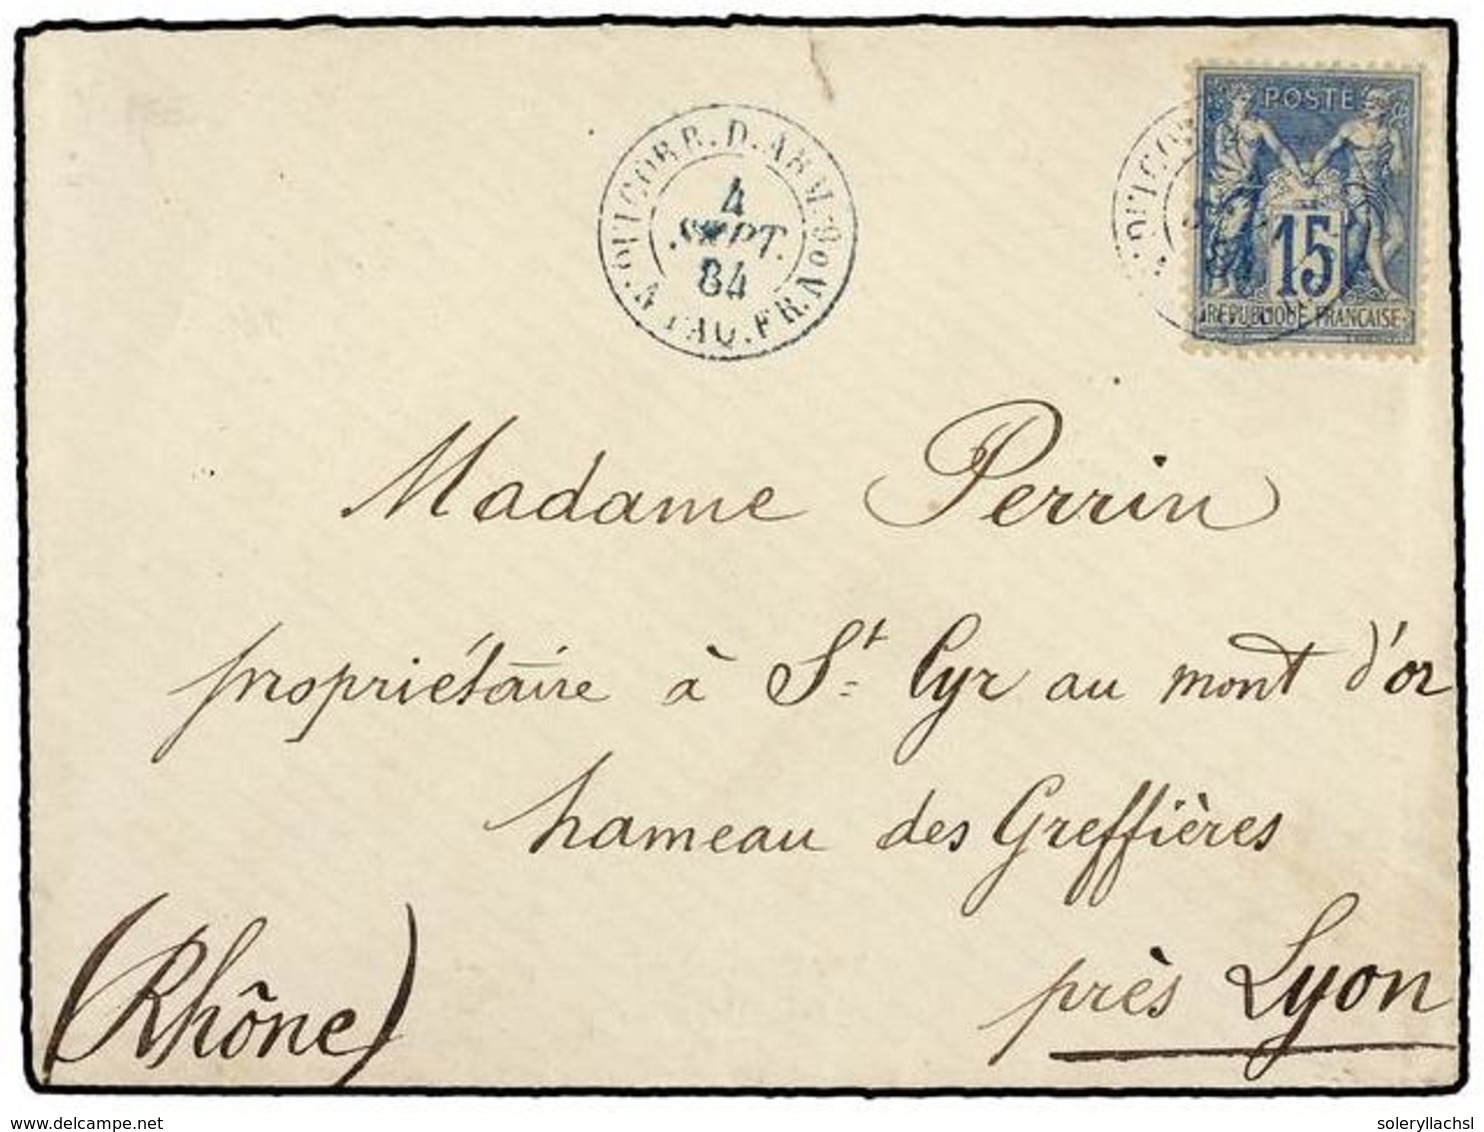 CORR.D.ARM.
PAQ.FR.No9
4
SEPT.
84
POSTE
15
REPUBLIQUE FRANCAISE
Madame Perrin
propriétaire à St Cyr au mont d'or
hameau des Greffières
près Lyon
(Rhône)
www.delcampe.net
soleryllachsl